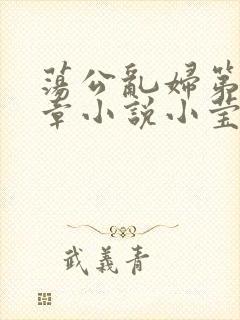 蕩公亂婦第
章小說小莹
武義青